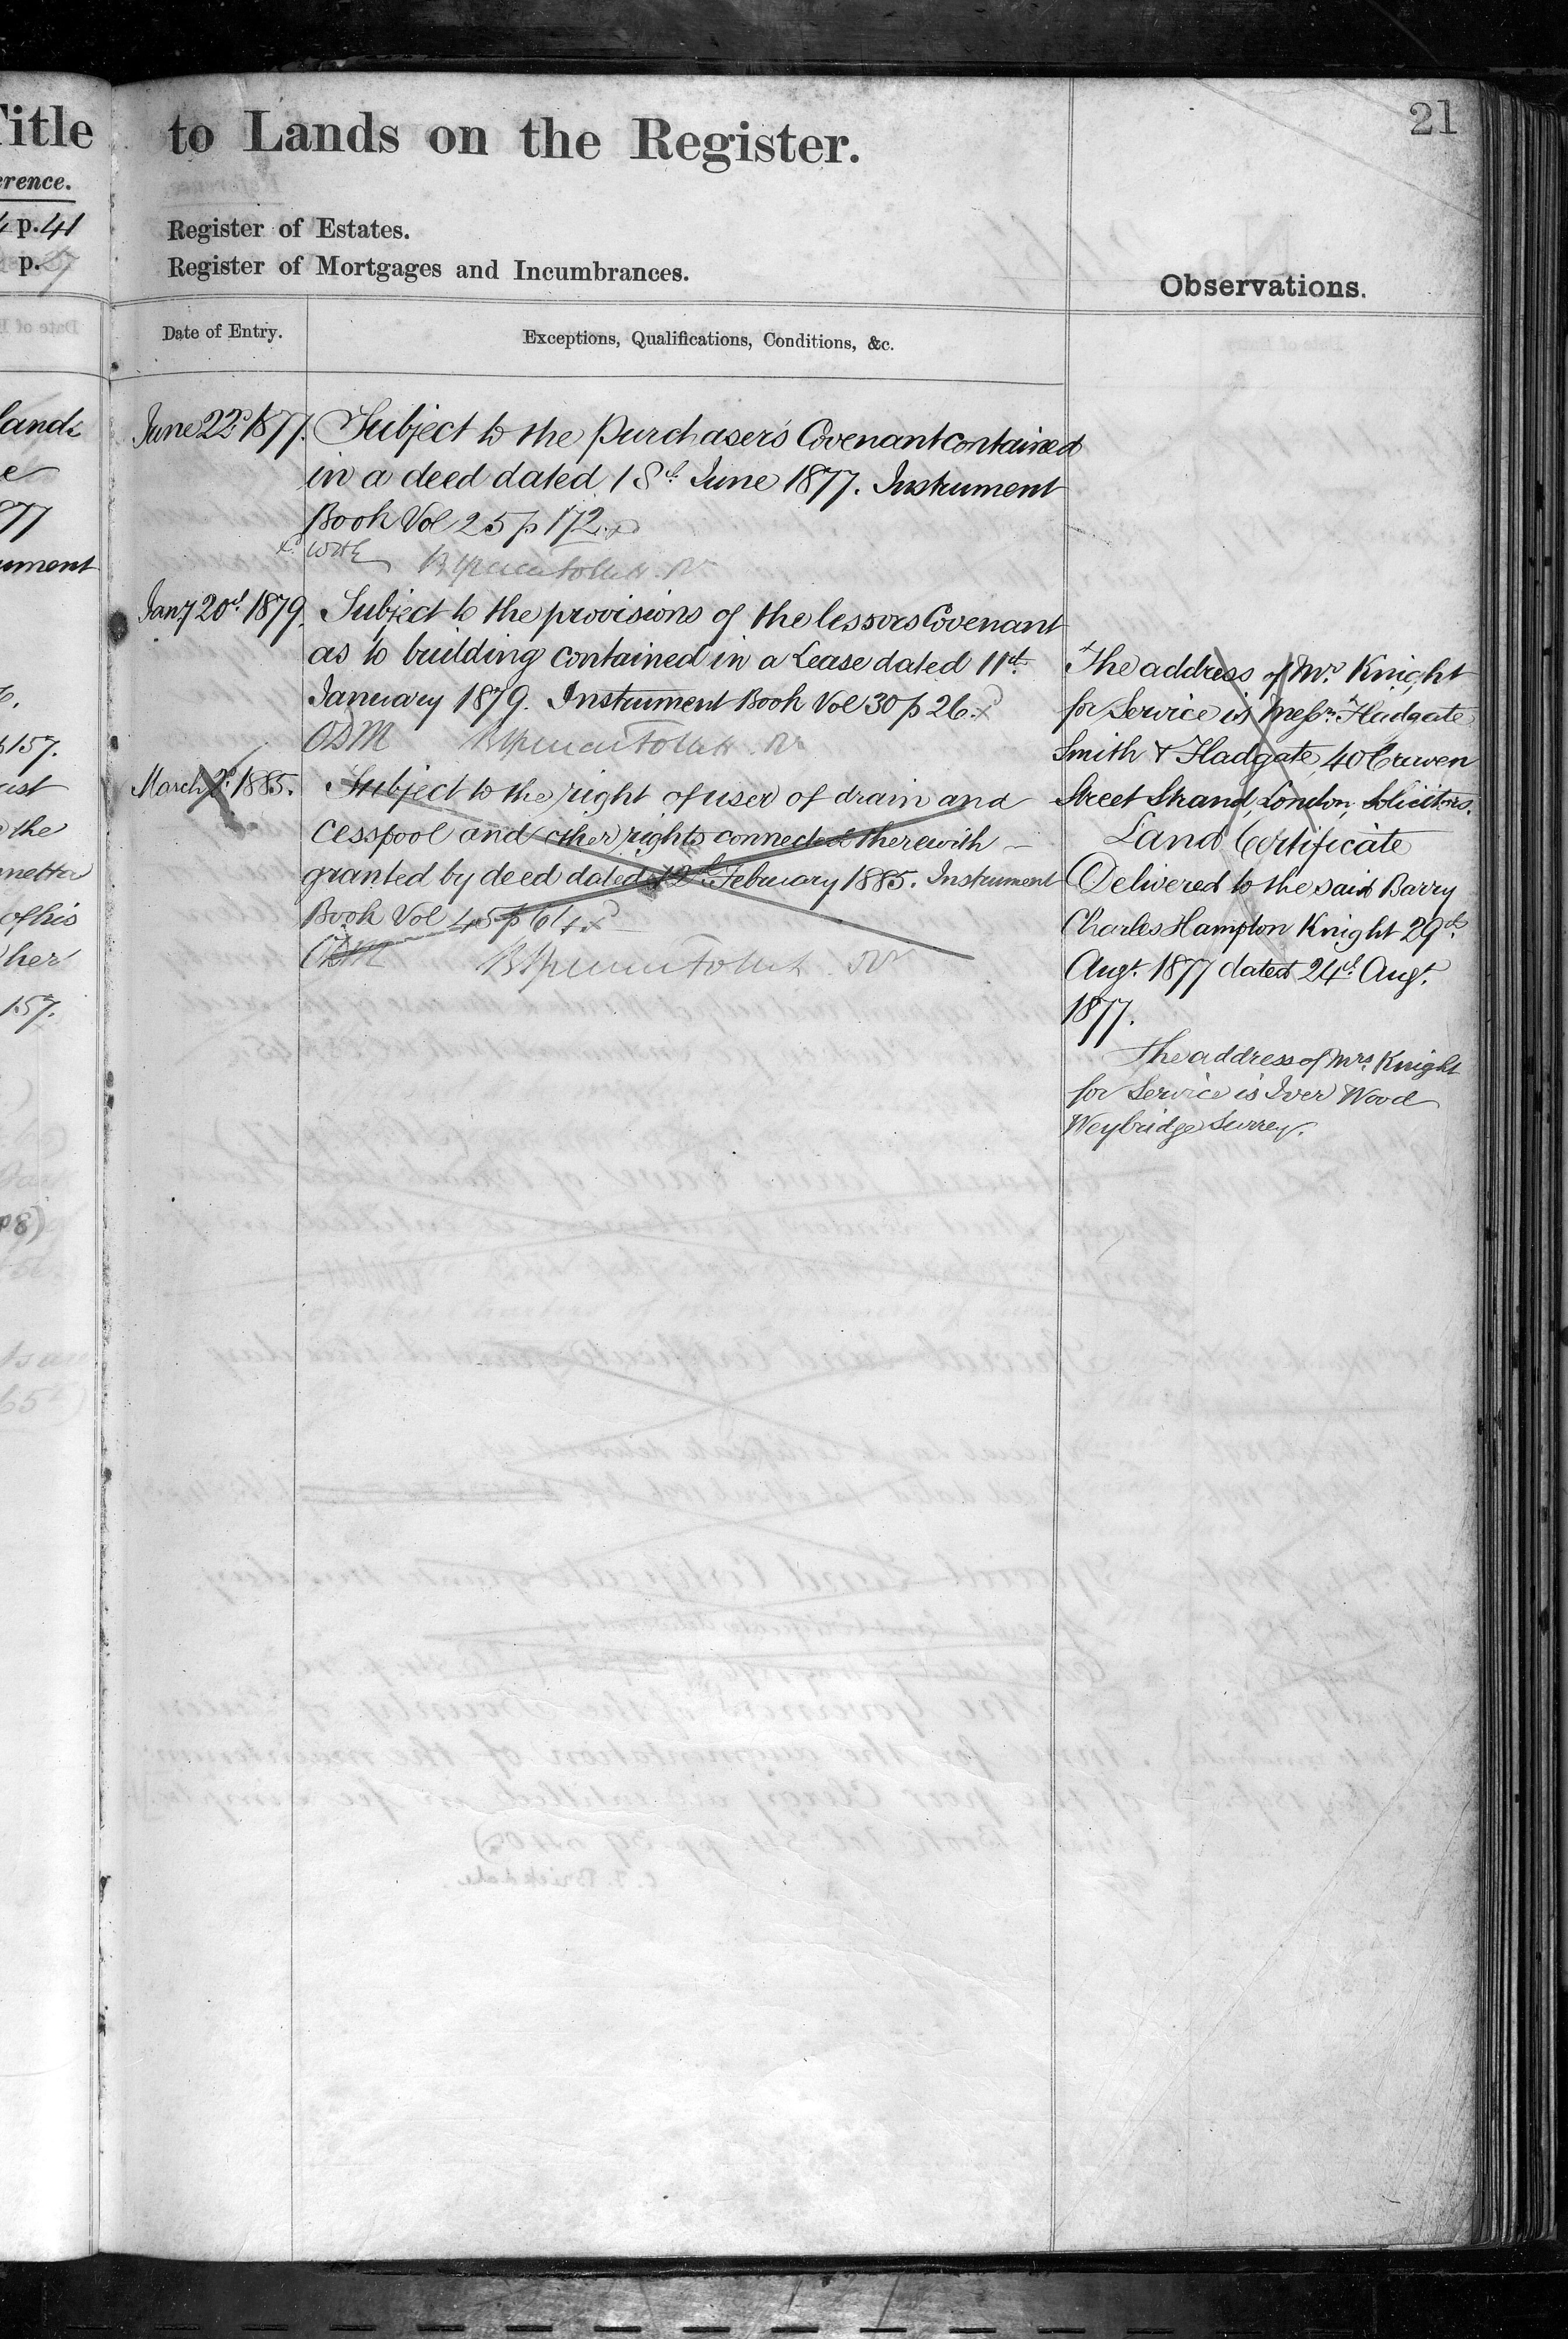 Title
erence.
p. 41
p. 27
to Lands on the Register.
21
Register of Estates.
Register of Mortgages and Incumbrances.
Observations.
Date of Entry.
Exceptions, Qualifications, Conditions, &c.
June 22d. 1877.
Subject to the Purchasers Covenant contained
in a deed dated 18th June 1877. Instrument
Book Vol 25 p 172.
Jany 20th 1879.
Subject to the provisions of the lessors Covenant
as to building contained in a Lease dated 11th
January 1879. Instrument Book Vol 30 p 26.
ODM
March 2d. 1885.
Subject to the right of user of drain and
Cesspool and other rights connected therewith
granted by deed dated 12th February 1885. Instrument
Book Vol 45 p 61
ODM
The address of Mr. Knight
for Service is Messrs. Hadgate
Smith & Hadgate, 40 Craven
Street Strand, London, Solicitors.
Land Certificate
Delivered to the said Barry
Charles Hampton Knight 29th
Augt. 1877 dated 24th Augt.
1877.
The address of Mrs. Knight
for Service is Iver Wood
Weybridge Surrey.
lands
e
77
ument
157.
ust
the
netta
of his
her
157.